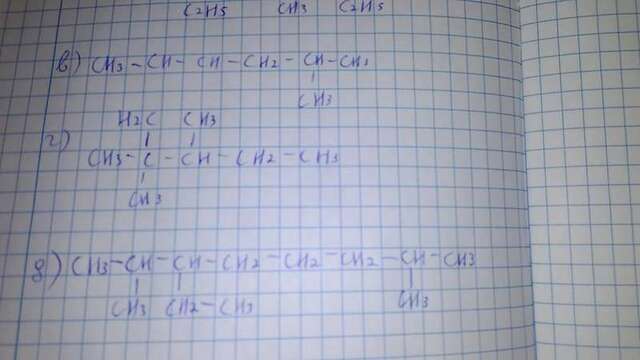 C2H5 CH3 C2H5
в) CH3 - CH - CH - CH2 - CH - CH3
CH3
H3C CH3
г) CH3 - C - CH - CH2 - CH3
CH3
д) CH3 - CH - CH - CH2 - CH2 - CH2 - CH - CH3
CH3 CH2 - CH3 CH3